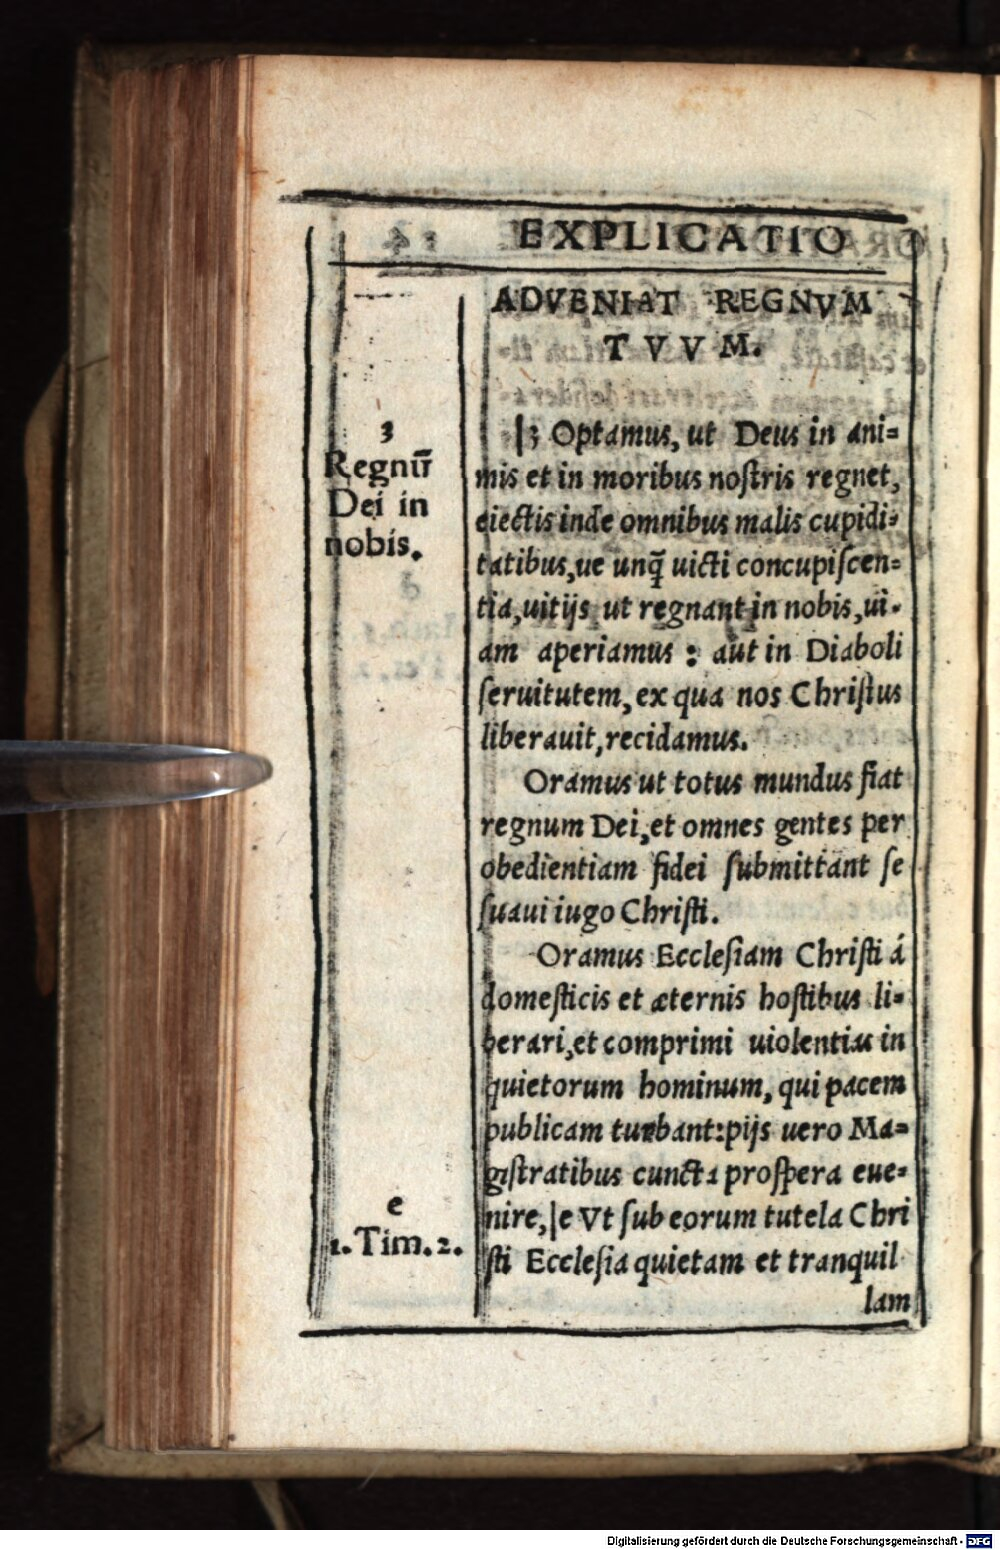 EXPLICATIO
ADVENIAT REGNVM
TVVM.
3
Regnū
Dei in
nobis.
|3 Optamus, ut Deus in ani=
mis et in moribus noſtris regnet,
eiectis inde omnibus malis cupidi=
tatibus, ue unq̄ uicti concupiſcen=
tia, uitijs ut regnant in nobis, ui=
am aperiamus : aut in Diaboli
ſeruitutem, ex qua nos Chriſtus
liberauit, recidamus.
Oramus ut totus mundus fiat
regnum Dei, et omnes gentes per
obedientiam fidei ſubmittant ſe
ſuaui iugo Chriſti.
Oramus Eccleſiam Chriſti á
domeſticis et æternis hoſtibus li=
berari, et comprimi uiolentias in
quietorum hominum, qui pacem
publicam turbant: pijs uero Ma=
giſtratibus cuncta proſpera eue=
nire, |e Vt ſub eorum tutela Chri
ſti Eccleſia quietam et tranquil
lam
e
1. Tim. 2.
Digitalisierung gefördert durch die Deutsche Forschungsgemeinschaft - DFG